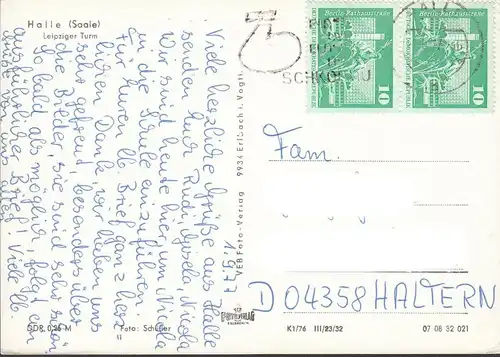 Halle (Saale)
Leipziger Turm
1.9.77
Viele herzliche Grüße aus Halle
senden euch Rudi, Gisela, Nicola
Wir sind hier um, Nicola
in die Schule einzuführen.
Für euren lb. Brief ganz herz-
lichen Dank. Wir haben uns
sehr gefreut, besonders über
die Bilder, sie sind sehr schön
So bald als möglich folgt ein
ausführlicher Brief. Viele lb.
Grüße an uns alle!
VEB Foto-Verlag 9934 Erlbach i. Vogtl.
Berlin-Rathausstrasse
DEUTSCHE DEMOKRATISCHE REPUBLIK
10
Berlin-Rathausstrasse
DEUTSCHE DEMOKRATISCHE REPUBLIK
10
Fam.
D 04358 HALTERN
DDR 0,25 M
Foto: Schüler
K1/76 III/23/32
07 08 32 021